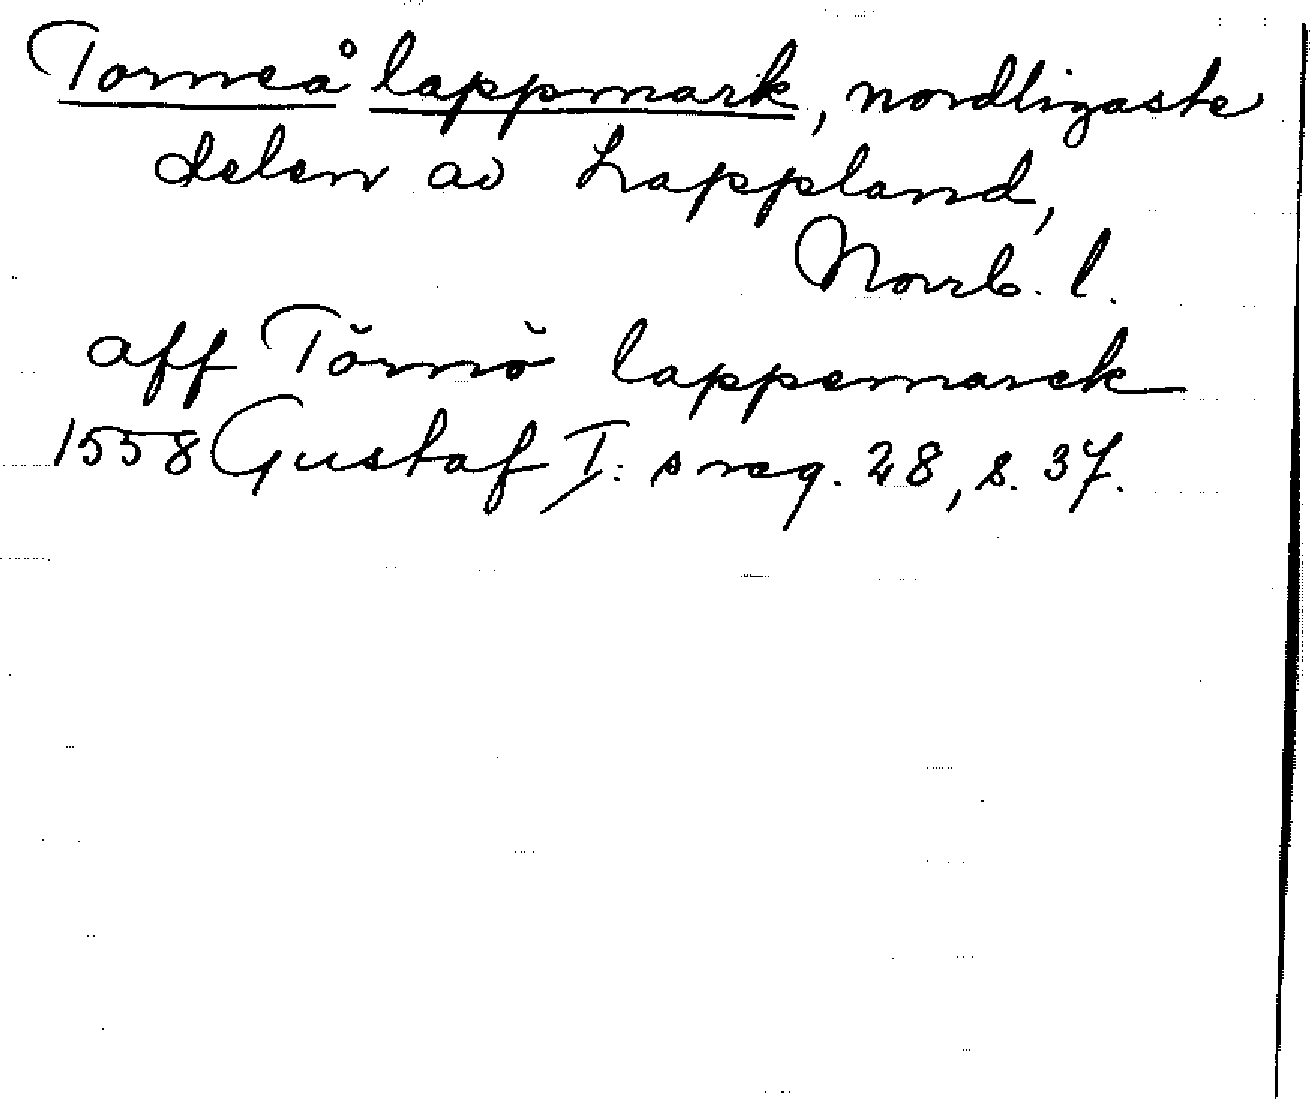 Torneå lappmark, nordligaste
delen av Lappland,
Norrb. l.
aff Törnö lappemarck
1558 Gustaf I:s reg. 28, s. 37.